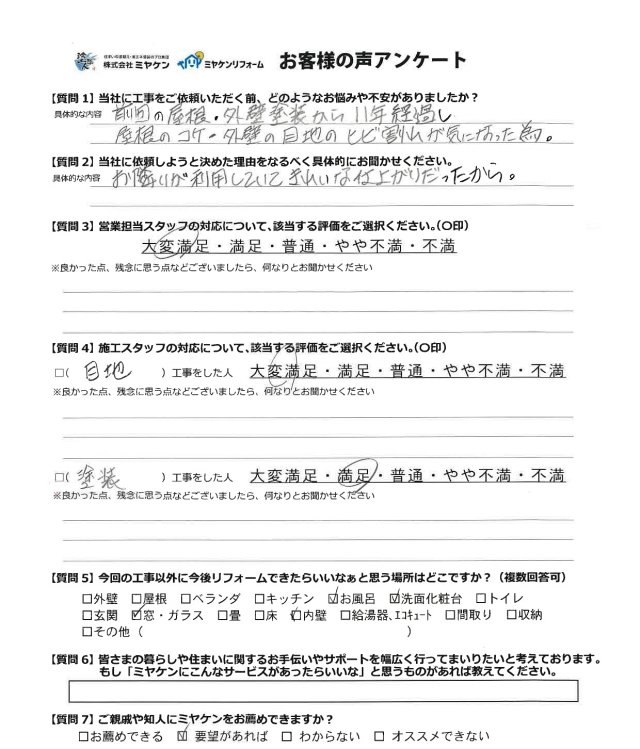 住まいの塗替え・省エネ塗装のプロ集団
株式会社 ミヤケン ミヤケンリフォーム お客様の声アンケート
【質問１】当社に工事をご依頼いただく前、どのようなお悩みや不安がありましたか？
具体的な内容 前回の屋根・外壁塗装から11年経過し
屋根のコケ・外壁の目地のヒビ割れが気になった為。
【質問２】当社に依頼しようと決めた理由をなるべく具体的にお聞かせください。
具体的な内容 お隣りが利用していてきれいな仕上がりだったから。
【質問３】営業担当スタッフの対応について、該当する評価をご選択ください。(〇印)
大変満足・満足・普通・やや不満・不満
※良かった点、残念に思う点などございましたら、何なりとお聞かせください
【質問４】施工スタッフの対応について、該当する評価をご選択ください。(〇印)
□( 目地 ）工事をした人 大変満足・満足・普通・やや不満・不満
※良かった点、残念に思う点などございましたら、何なりとお聞かせください
□( 塗装 ）工事をした人 大変満足・満足・普通・やや不満・不満
※良かった点、残念に思う点などございましたら、何なりとお聞かせください
【質問５】今回の工事以外に今後リフォームできたらいいなぁと思う場所はどこですか？（複数回答可）
□外壁 □屋根 □ベランダ □キッチン ☑お風呂 ☑洗面化粧台 □トイレ
□玄関 ☑窓・ガラス □畳 □床 ☑内壁 □給湯器、ｴｺｷｭｰﾄ □間取り □収納
□その他（ ）
【質問６】皆さまの暮らしや住まいに関するお手伝いやサポートを幅広く行ってまいりたいと考えております。
もし「ミヤケンにこんなサービスがあったらいいな」と思うものがあれば教えてください。
【質問７】ご親戚や知人にミヤケンをお薦めできますか？
□お薦めできる ☑ 要望があれば □ わからない □ オススメできない